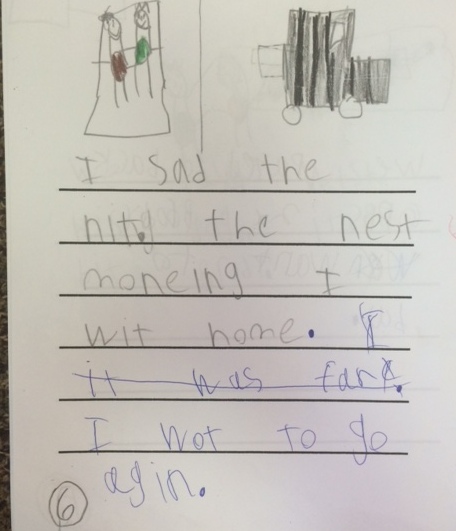 I sad the
nity the nest
moneing I
wit home. I
it was fank.
I wot to go
agin.
6